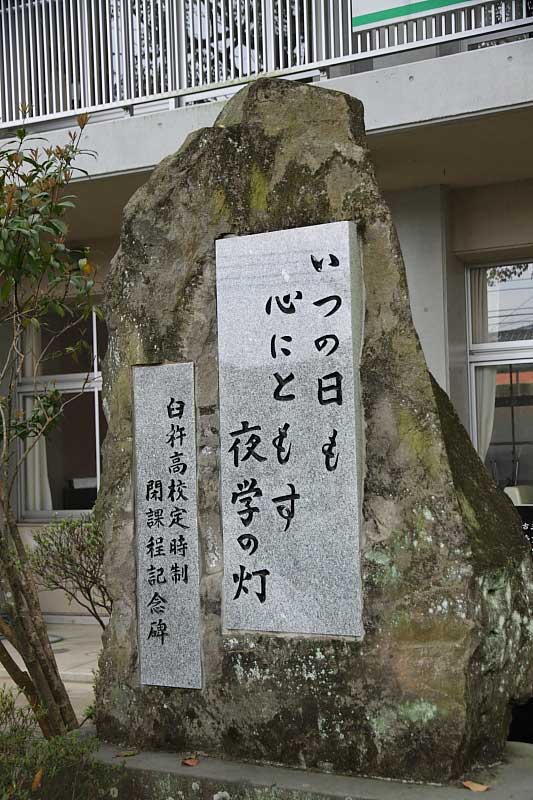 いつの日も
心にともす
夜学の灯
臼杵高校定時制
閉課程記念碑